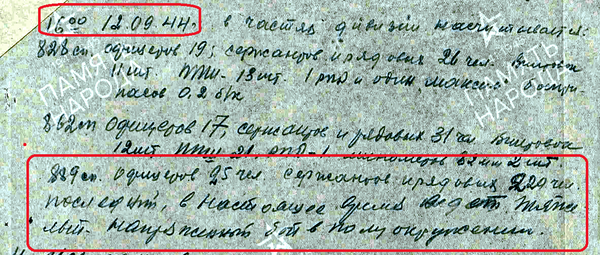 16⁰⁰ 12.09.44г. в частях дивизии насчитывается:
828сп. офицеров 19; сержантов и рядовых 26 чел. Винтовок
11 шт. ППШ - 13 шт. 1 РПД и один максим. Боепри-
пасов 0,2 б/к
862сп офицеров 17, сержантов и рядовых 31 чел. Винтовок
12 шт ППШ 21, РПД-1 минометов 82мм 2 шт
889сп. офицеров 25 чел. сержантов и рядовых 220 чел.
последний, в настоящее время ведет тяже
лый напряженный бой в полуокружении.
ПАМЯТЬ
НАРОДА
ПАМЯТЬ
НАРОДА